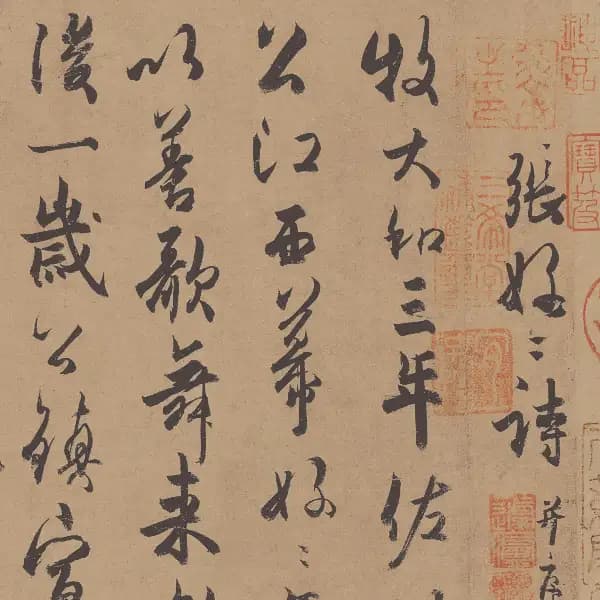 張好〻詩 并序
牧大和三年佐
公江西幕好〻
以善歌舞来
後一歲公鎮宣